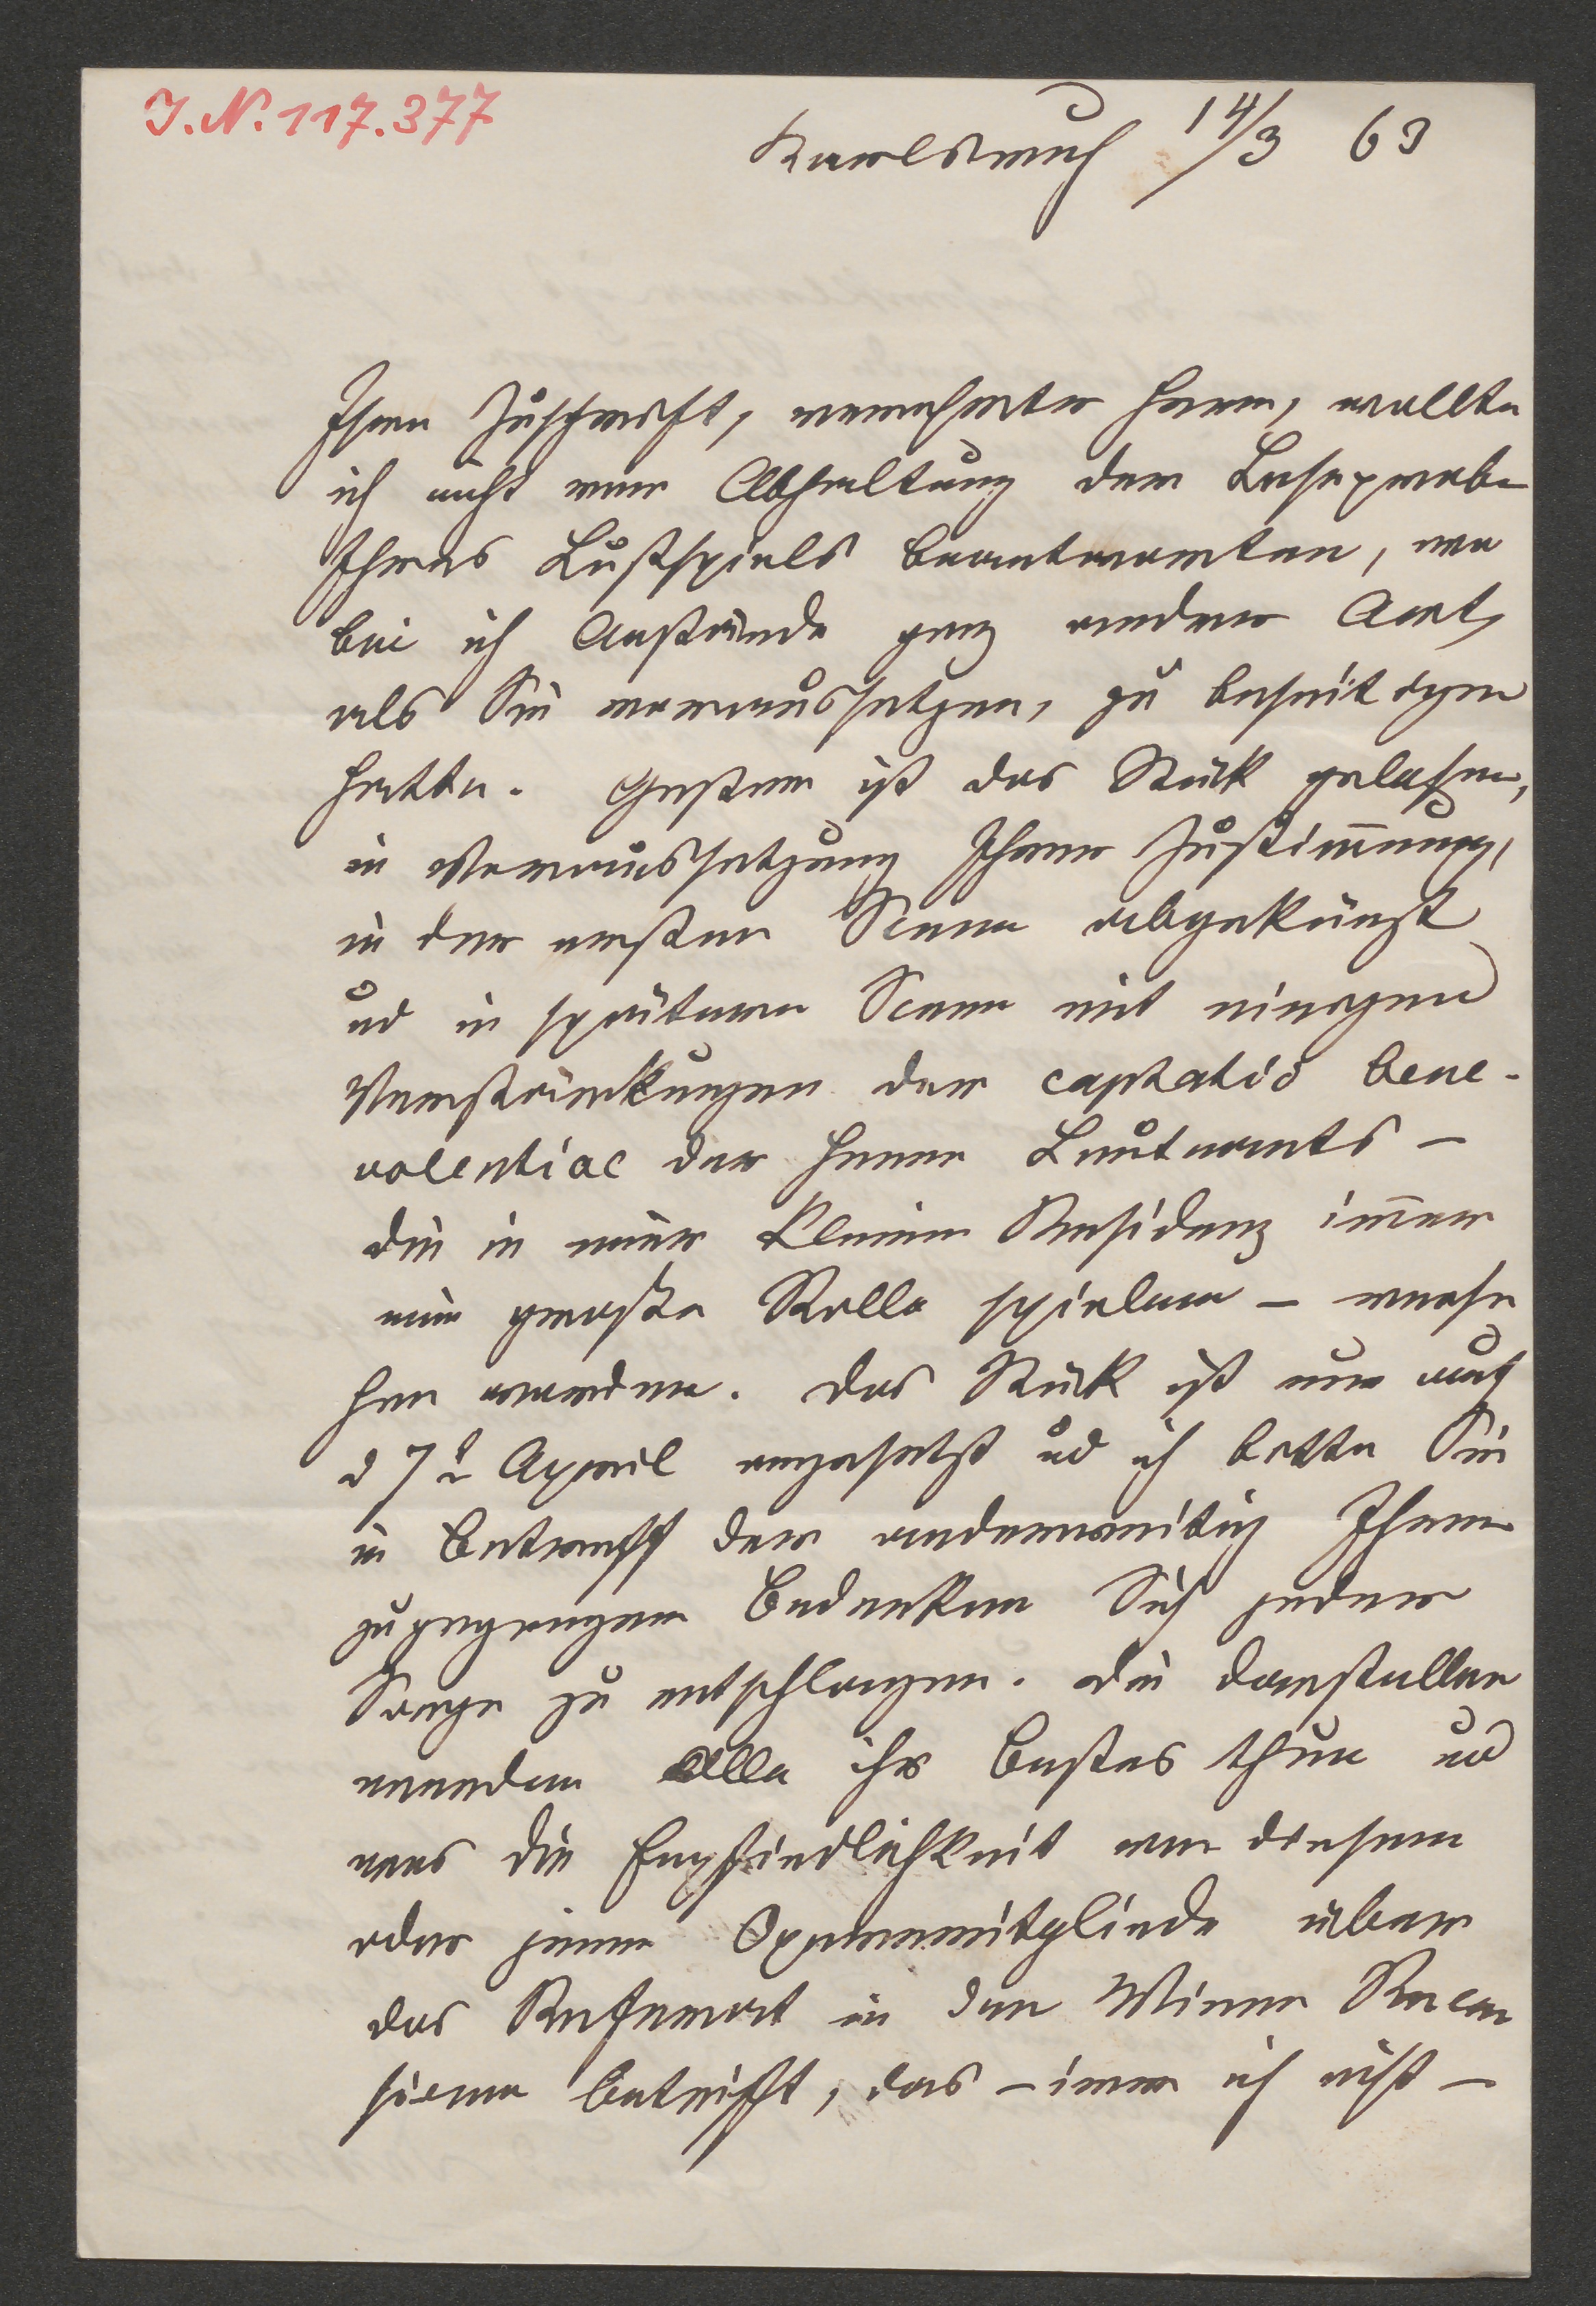 I.N. 117.377
Karlsruh 14/3 63
Ihre Zuschrift, verehrter Herr, wollte
ich nicht vor Abhaltung der Leseprobe
Ihres Lustspiels beantworten, wo
bei ich Anstände ganz andrer Art,
als Sie voraussetzen, zu beseitigen
hatte. Gestern ist das Stück gelesen,
in Voraussetzung Ihrer Zustimmung,
in der ersten Scene abgekürzt
ud in spätern Scenen mit einigen
Verstärkungen der captatio bene-
volentiae der Herrn Leutenants –
die in einer kleinen Residenz im̅er
eine große Rolle spielen – verse
hen worden. Das Stück ist nun auf
d 7t April angesetzt ud ich bitte Sie
in Betreff der anderweitig Ihnen
zugegangnen Bedenken Sich jeder
Sorge zu entschlagen. Die Darsteller
werden Alle ihr Bestes thun ud
was die Empfindlichkeit von diesem
oder jenem Opernmitgliede über
das Referat in den Wiener Recen
sionen betrifft, das – irre ich nicht –